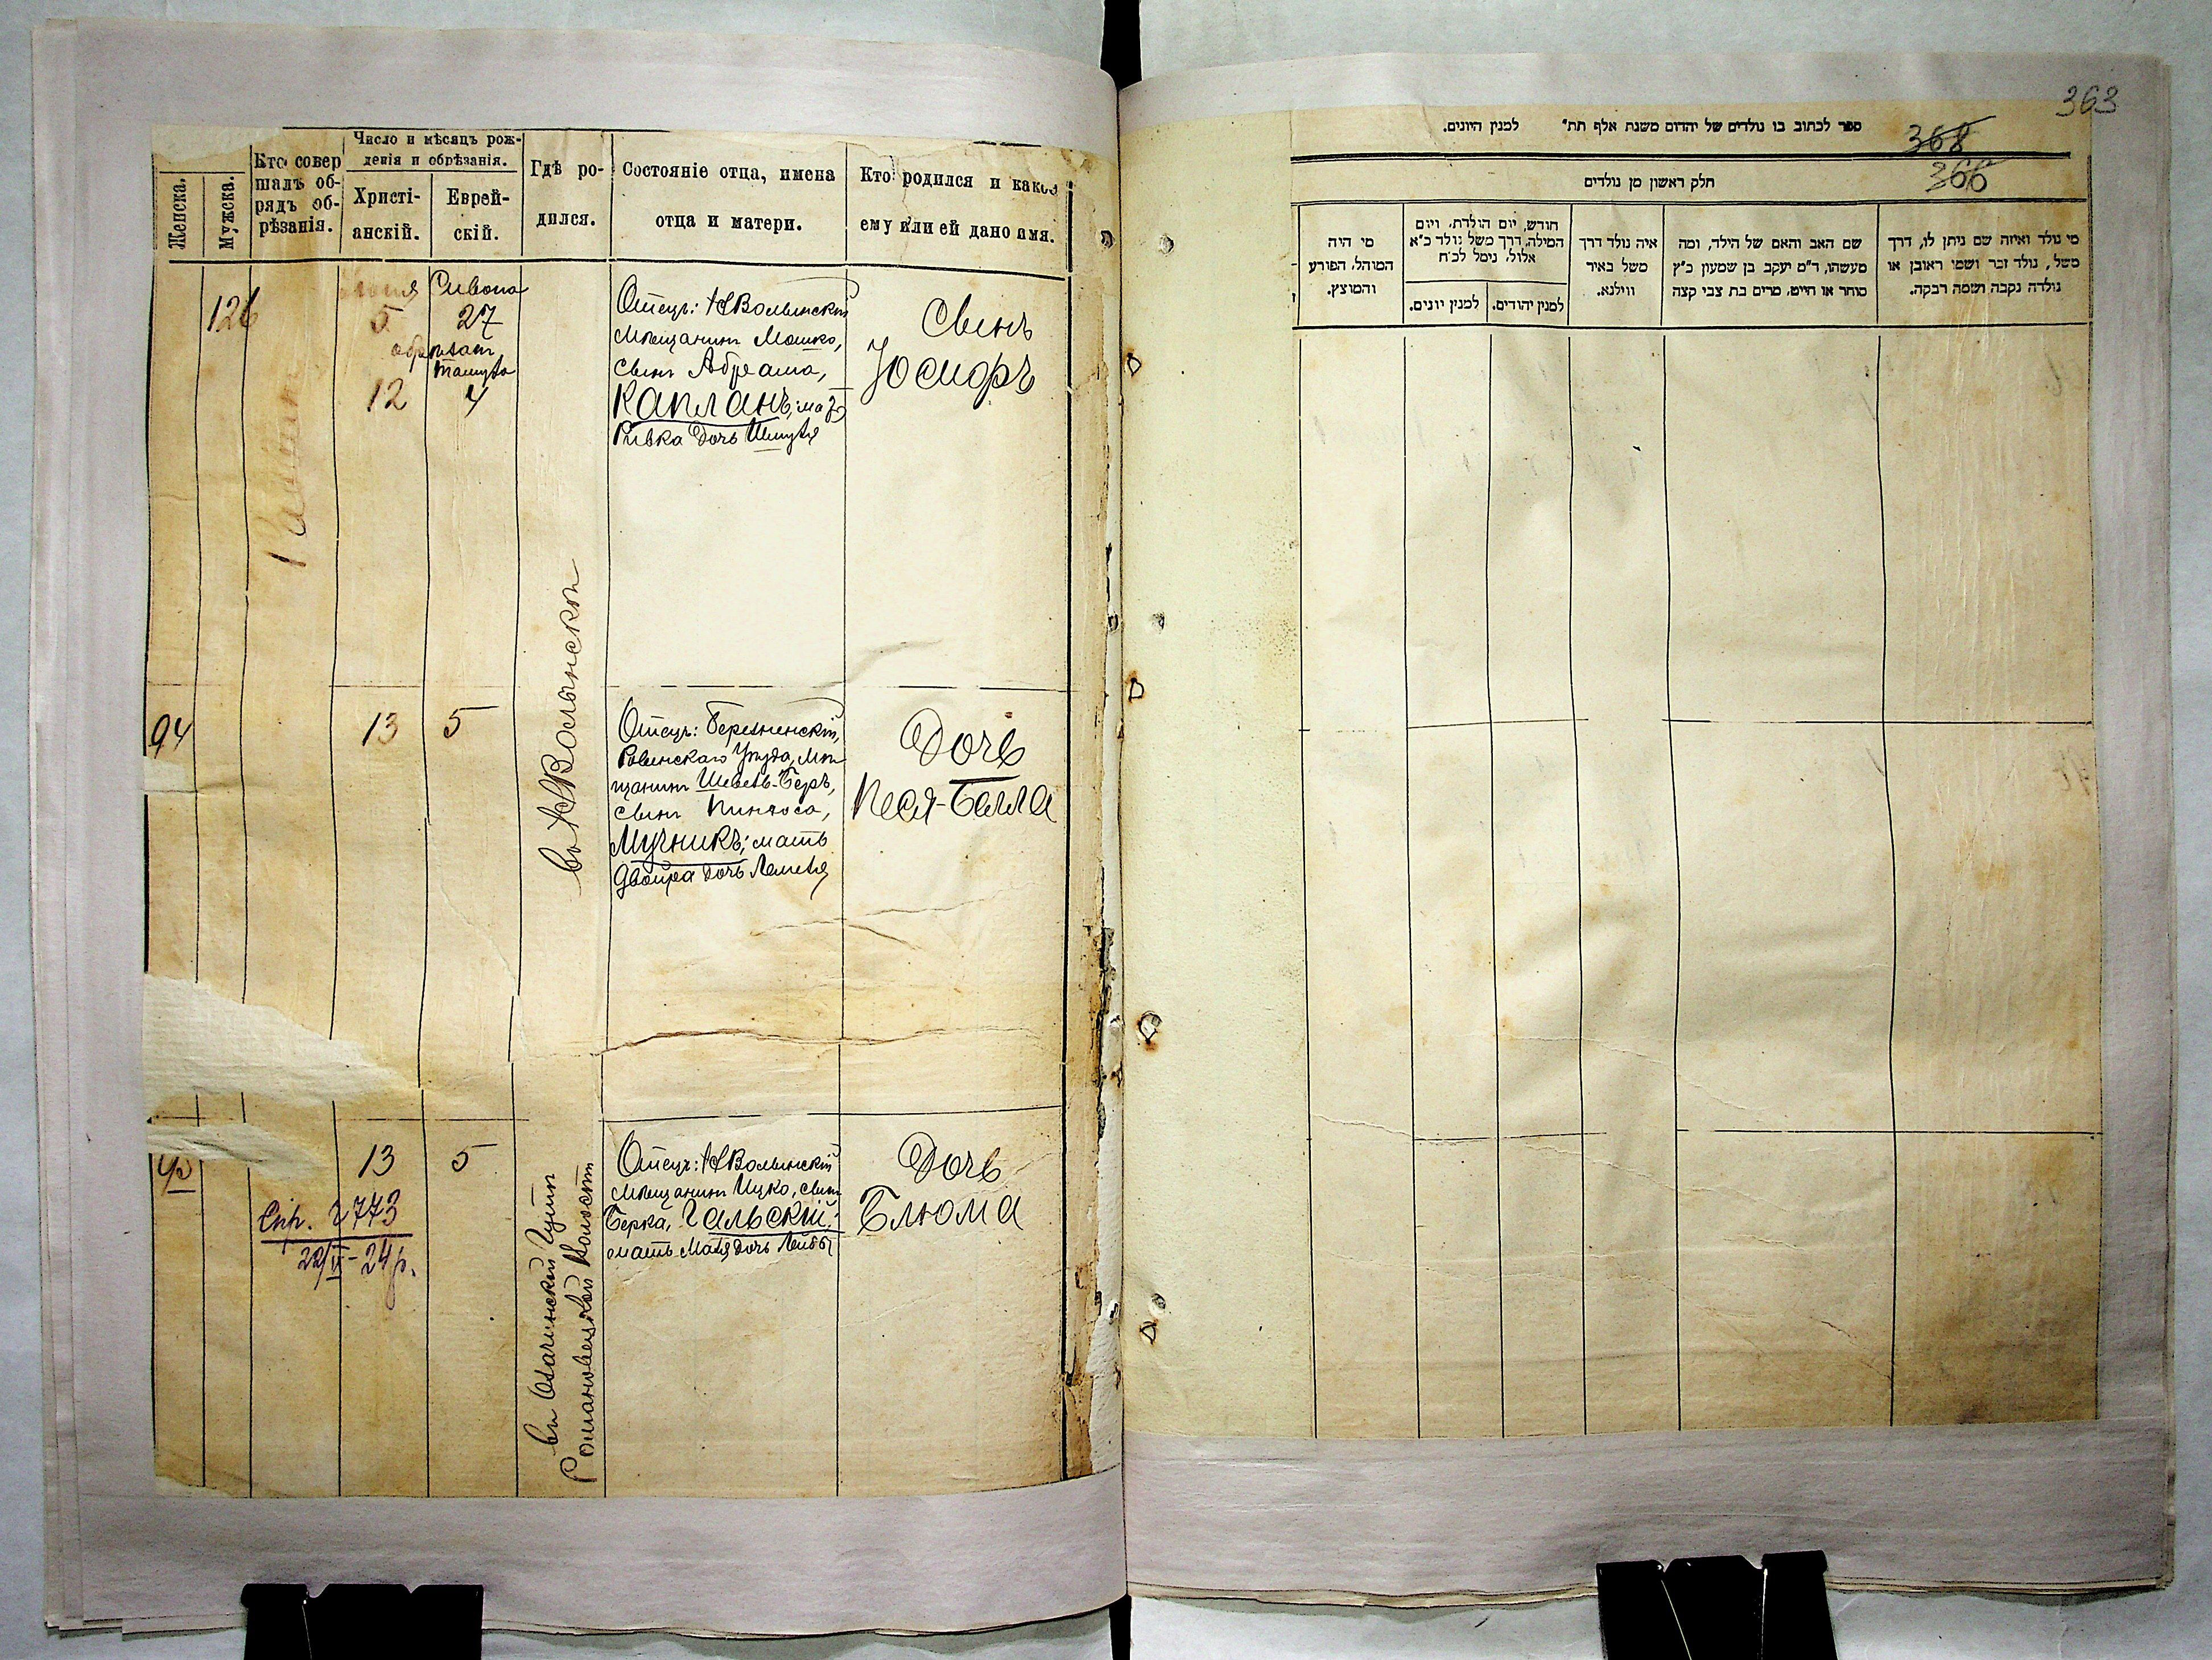 Женска.
Мужска.
Кто совер
шалъ об-
рядъ об-
рѣзанія.
Число и мѣсяцъ рож-
денія и обрѣзанія.
Христі-
анскій.
Еврей-
скій.
Гдѣ ро-
дился.
Состояніе отца, имена
отца и матери.
Кто родился и какое
ему или ей дано имя.
126
5
Сивона
27
обрѣзанъ
Тамуза
12
4
въ НВолынскѣ
Отецъ: НВолынскій
мѣщанинъ Мошко,
сынъ Абрама,
Капланъ; мать
Ривка дочь Шмуля
Сынъ
Іосифъ
94
13
5
Отецъ: Березненскій,
Ровенскаго Уѣзда, мѣ-
щанинъ Шевель-Беръ,
сынъ Пинхоса,
Мучникъ; мать
Двойра дочь
Дочь
Песя-Бейла
13
5
Спр. 2773
22/VI - 24 р.
Романовецкой Волости
Отецъ: НВолынскій
мѣщанинъ Ицко, сынъ
Берка, Гальскій;
мать Маня дочь Лейбы
Дочь
Блюма
363
368
366
ספר לכתוב בו נולדים של יהדום משנת אלף תת" למנין היונים.
חלק ראשון מן נולדים
מי נולד ואיזה שם ניתן לו, דרך
משל, נולד זכר ושמו ראובן או
נולדה נקבה ושמה רבקה.
שם האב והאם של הילד, ומה
מעשהו, ד"מ יעקב בן שמעון כ"ץ
סוחר או חייט, מרים בת צבי קצה
איה נולד דרך
משל באיר
ווילנא.
חודש, יום הולדת, ויום
המילה, דרך משל נולד כ"א
אלול, נימל לכ"ח
למנין יהודים.
למנין יונים.
מי היה
המוהל, הפורע
והמוצץ.